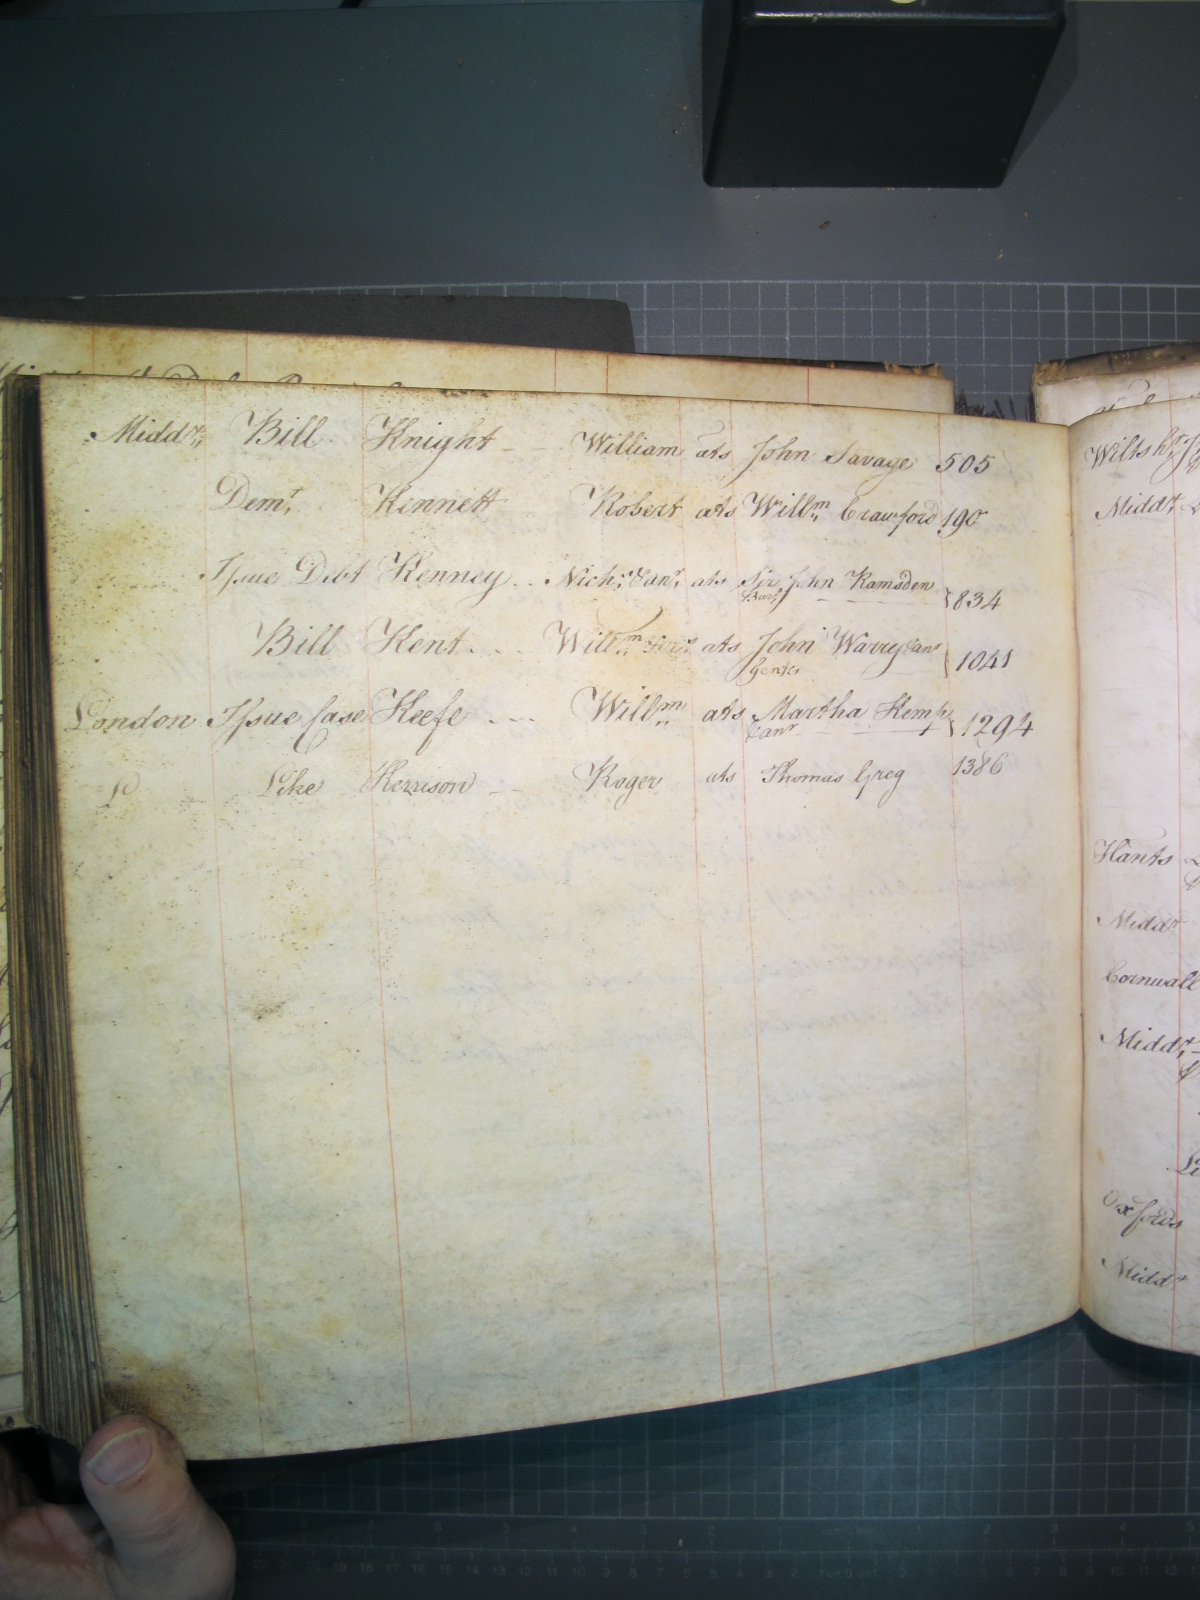 Middx Bill Knight William ats John Savage 505
Demr Kennett Robert ats Willm Crawford 190
Issue Debt Kenney Nichs Esqr ats Sir John Ramsden 834
Bart
Bill Kent Willm ats John Warry 1041
Gent
London Issue Case Keefe Willm ats Martha Kemp 1294
Like Kerrison Roger ats Thomas Greg 1386
Wilts
Middx
Hants
Middx
Cornwall
Middx
Oxfords
Middx